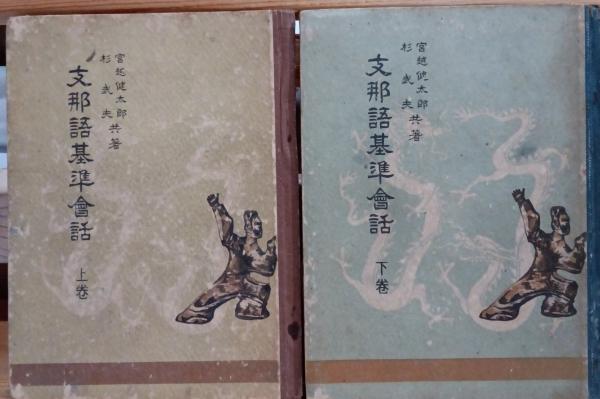 宮越健太郎
杉武夫 共著
支那語基準會話
上卷
宮越健太郎
杉武夫 共著
支那語基準會話
下卷